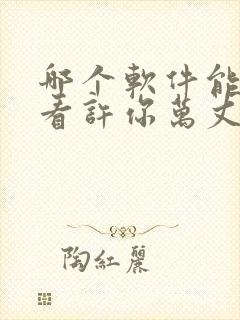 哪个軟件能
看許你萬丈
陶紅麗